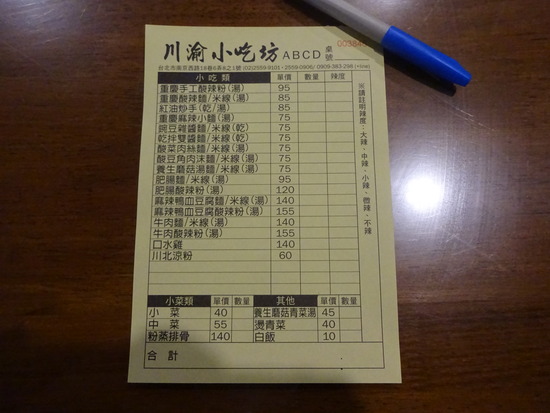 川渝小吃坊 ABCD 桌號
小吃類 單價 數量 辣度
重慶手工酸辣粉(湯) 95
重慶酸辣麵/米線(湯) 85
紅油炒手(乾/湯) 85
重慶麻辣小麵(湯) 75
豌豆雜醬麵/米線(乾) 75
乾拌雙醬麵/米線(乾) 75
酸菜肉絲麵/米線(湯) 75
酸豆角肉沫麵/米線(湯) 75
養生蘑菇湯麵/米線(湯) 75
肥腸麵/米線(湯) 95
肥腸酸辣粉(湯) 120
麻辣鴨血豆腐麵/米線(湯) 140
麻辣鴨血豆腐酸辣粉(湯) 155
牛肉麵/米線(湯) 140
牛肉酸辣粉(湯) 155
口水雞 140
川北涼粉 60
※請註明辣度：大辣、中辣、小辣、微辣、不辣
小菜類 單價 數量 其他 單價 數量
小菜 40 養生蘑菇青菜湯 45
中菜 55 燙青菜 40
粉蒸排骨 140 白飯 10
合計